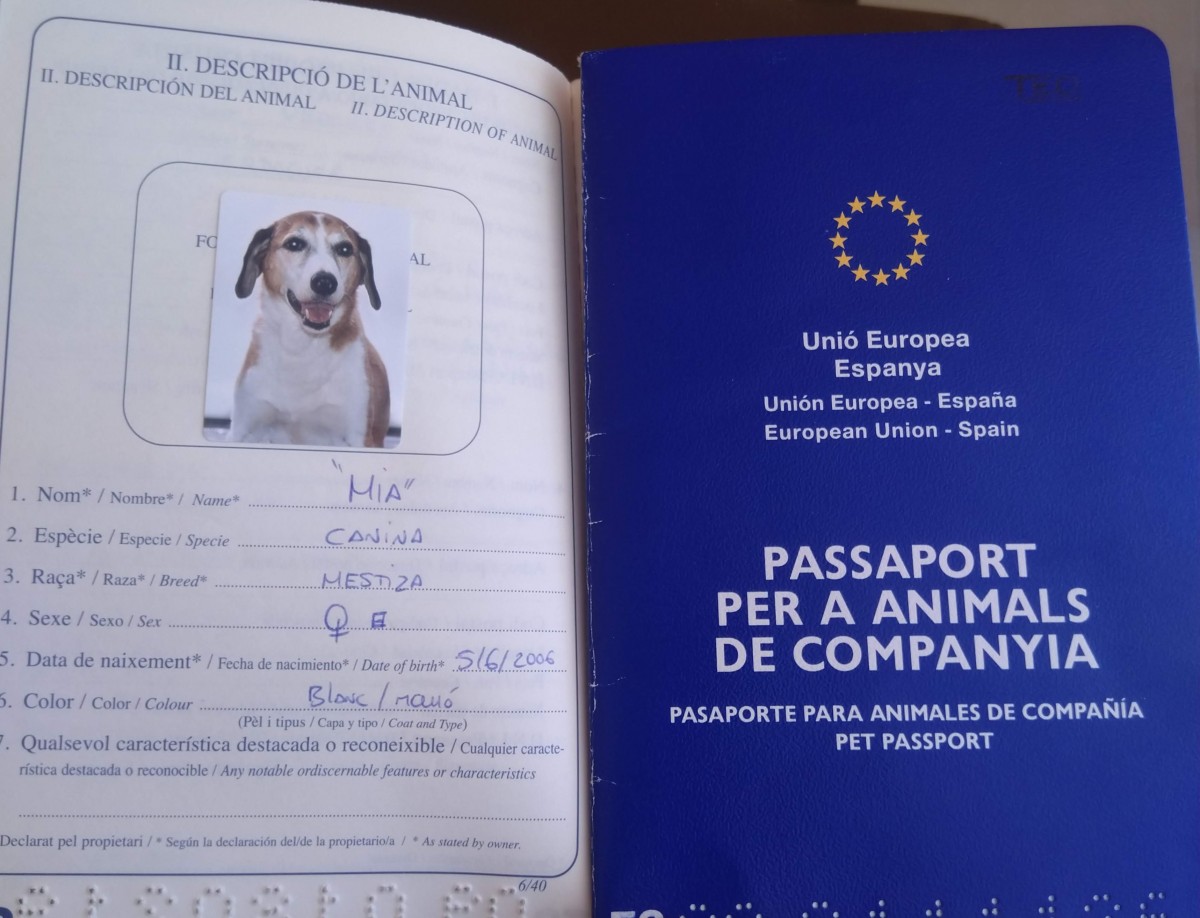 II. DESCRIPCIÓ DE L'ANIMAL
II. DESCRIPCIÓN DEL ANIMAL II. DESCRIPTION OF ANIMAL
FO AL
1. Nom* / Nombre* / Name* "MIA"
2. Espècie / Especie / Specie CANINA
3. Raça* / Raza* / Breed* MESTIZA
4. Sexe / Sexo / Sex ♀
5. Data de naixement* / Fecha de nacimiento* / Date of birth* 5/6/2006
6. Color / Color / Colour Blanc / marró
(Pèl i tipus / Capa y tipo / Coat and Type)
7. Qualsevol característica destacada o reconeixible / Cualquier caracte-
rística destacada o reconocible / Any notable ordiscernable features or characteristics
Declarat pel propietari / * Según la declaración del/de la propietario/a / * As stated by owner.
6/40
Unió Europea
Espanya
Unión Europea - España
European Union - Spain
PASSAPORT
PER A ANIMALS
DE COMPANYIA
PASAPORTE PARA ANIMALES DE COMPAÑÍA
PET PASSPORT